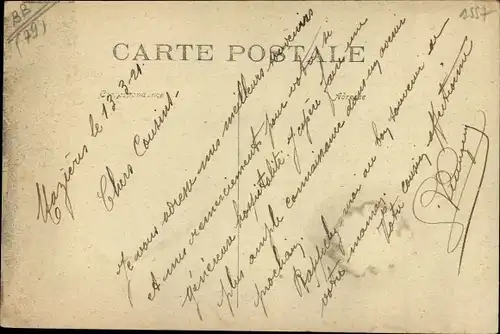 BB
(79)
1557
CARTE POSTALE
Correspondance
Adresse
Mazières le 13-3-21.
Chers Cousins.
Je vous adresse mes meilleurs souvenirs
et mes remerciements pour votre si
généreuse hospitalité. J'espère faire une
plus ample connaissance dans un avenir
prochain.
Rappelez-moi au bon souvenir de
votre maman.
Votre cousin affectionné